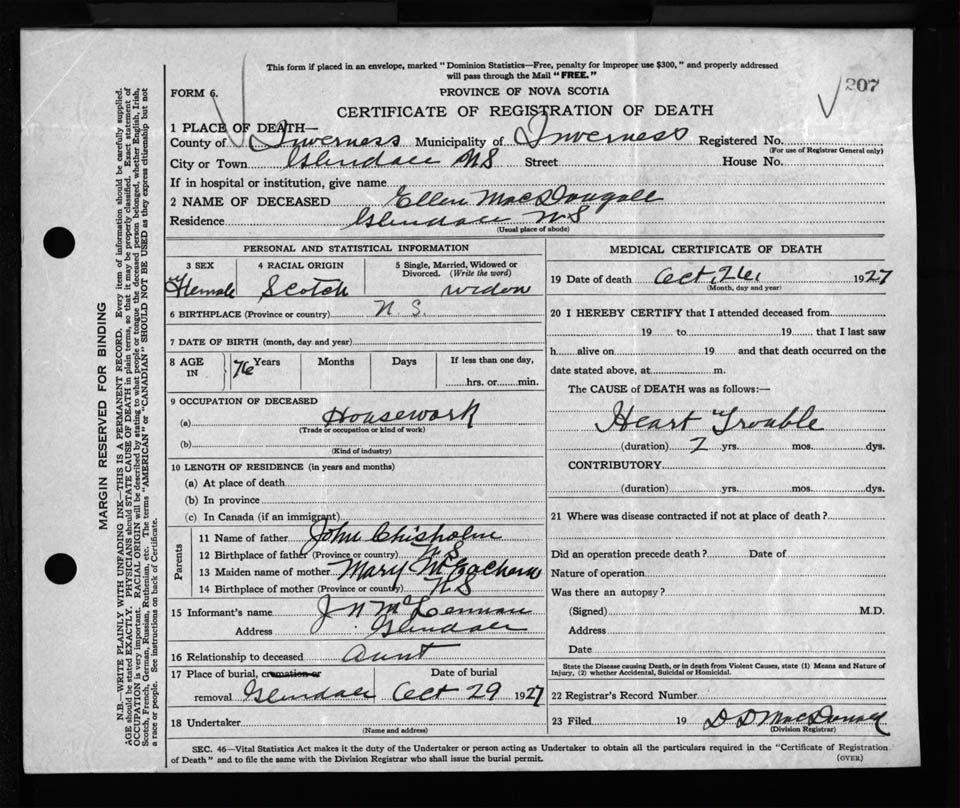 This form if placed in an envelope, marked "Dominion Statistics—Free, penalty for improper use $300," and properly addressed
will pass through the Mail "FREE."
207
FORM 6.
PROVINCE OF NOVA SCOTIA
CERTIFICATE OF REGISTRATION OF DEATH
1 PLACE OF DEATH—
County of Inverness Municipality of Inverness Registered No.
(For use of Registrar General only)
City or Town Glendale NS Street House No.
If in hospital or institution, give name
2 NAME OF DECEASED Ellen MacDougall
Residence Glendale NS
(Usual place of abode)
PERSONAL AND STATISTICAL INFORMATION
3 SEX 4 RACIAL ORIGIN 5 Single, Married, Widowed or
Divorced. (Write the word)
Female Scotch widow
6 BIRTHPLACE (Province or country) N.S.
7 DATE OF BIRTH (month, day and year)
8 AGE IN 76 Years Months Days If less than one day,
hrs. or min.
9 OCCUPATION OF DECEASED
(a) Housework
(Trade or occupation or kind of work)
(b)
(Kind of industry)
10 LENGTH OF RESIDENCE (in years and months)
(a) At place of death
(b) In province
(c) In Canada (if an immigrant)
Parents
11 Name of father John Chisholm
12 Birthplace of father (Province or country) NS
13 Maiden name of mother Mary McEachern
14 Birthplace of mother (Province or country) NS
15 Informant's name J N McLennan
Address Glendale
16 Relationship to deceased Aunt
17 Place of burial, cremation or Date of burial
removal Glendale Oct 29 1927
18 Undertaker
(Name and address)
MEDICAL CERTIFICATE OF DEATH
19 Date of death Oct, 26, 1927
(Month, day and year)
20 I HEREBY CERTIFY that I attended deceased from
19 to 19 that I last saw
h alive on 19 and that death occurred on the
date stated above, at m.
The CAUSE of DEATH was as follows:—
Heart Trouble
(duration) 2 yrs. mos. dys.
CONTRIBUTORY
(duration) yrs. mos. dys.
21 Where was disease contracted if not at place of death?
Did an operation precede death? Date of
Nature of operation
Was there an autopsy?
(Signed) M.D.
Address
Date
State the Disease causing Death, or in death from Violent Causes, state (1) Means and Nature of
Injury, (2) whether Accidental, Suicidal or Homicidal.
22 Registrar's Record Number
23 Filed 19 D D MacDonald
(Division Registrar)
SEC. 46—Vital Statistics Act makes it the duty of the Undertaker or person acting as Undertaker to obtain all the particulars required in the "Certificate of Registration
of Death" and to file the same with the Division Registrar who shall issue the burial permit.
(OVER)
MARGIN RESERVED FOR BINDING
N.B.—WRITE PLAINLY WITH UNFADING INK—THIS IS A PERMANENT RECORD. Every item of information should be carefully supplied.
AGE should be stated EXACTLY. PHYSICIANS should STATE CAUSE OF DEATH in plain terms, so that it may be properly classified. Exact statement of
OCCUPATION is very important. RACIAL ORIGIN will be described by stating to what people or tongue the deceased person belonged, whether English, Irish,
Scotch, French, German, Russian, Ruthenian, etc. The terms "AMERICAN" or "CANADIAN" SHOULD NOT BE USED as they express citizenship but not
a race or people. See instructions on back of Certificate.